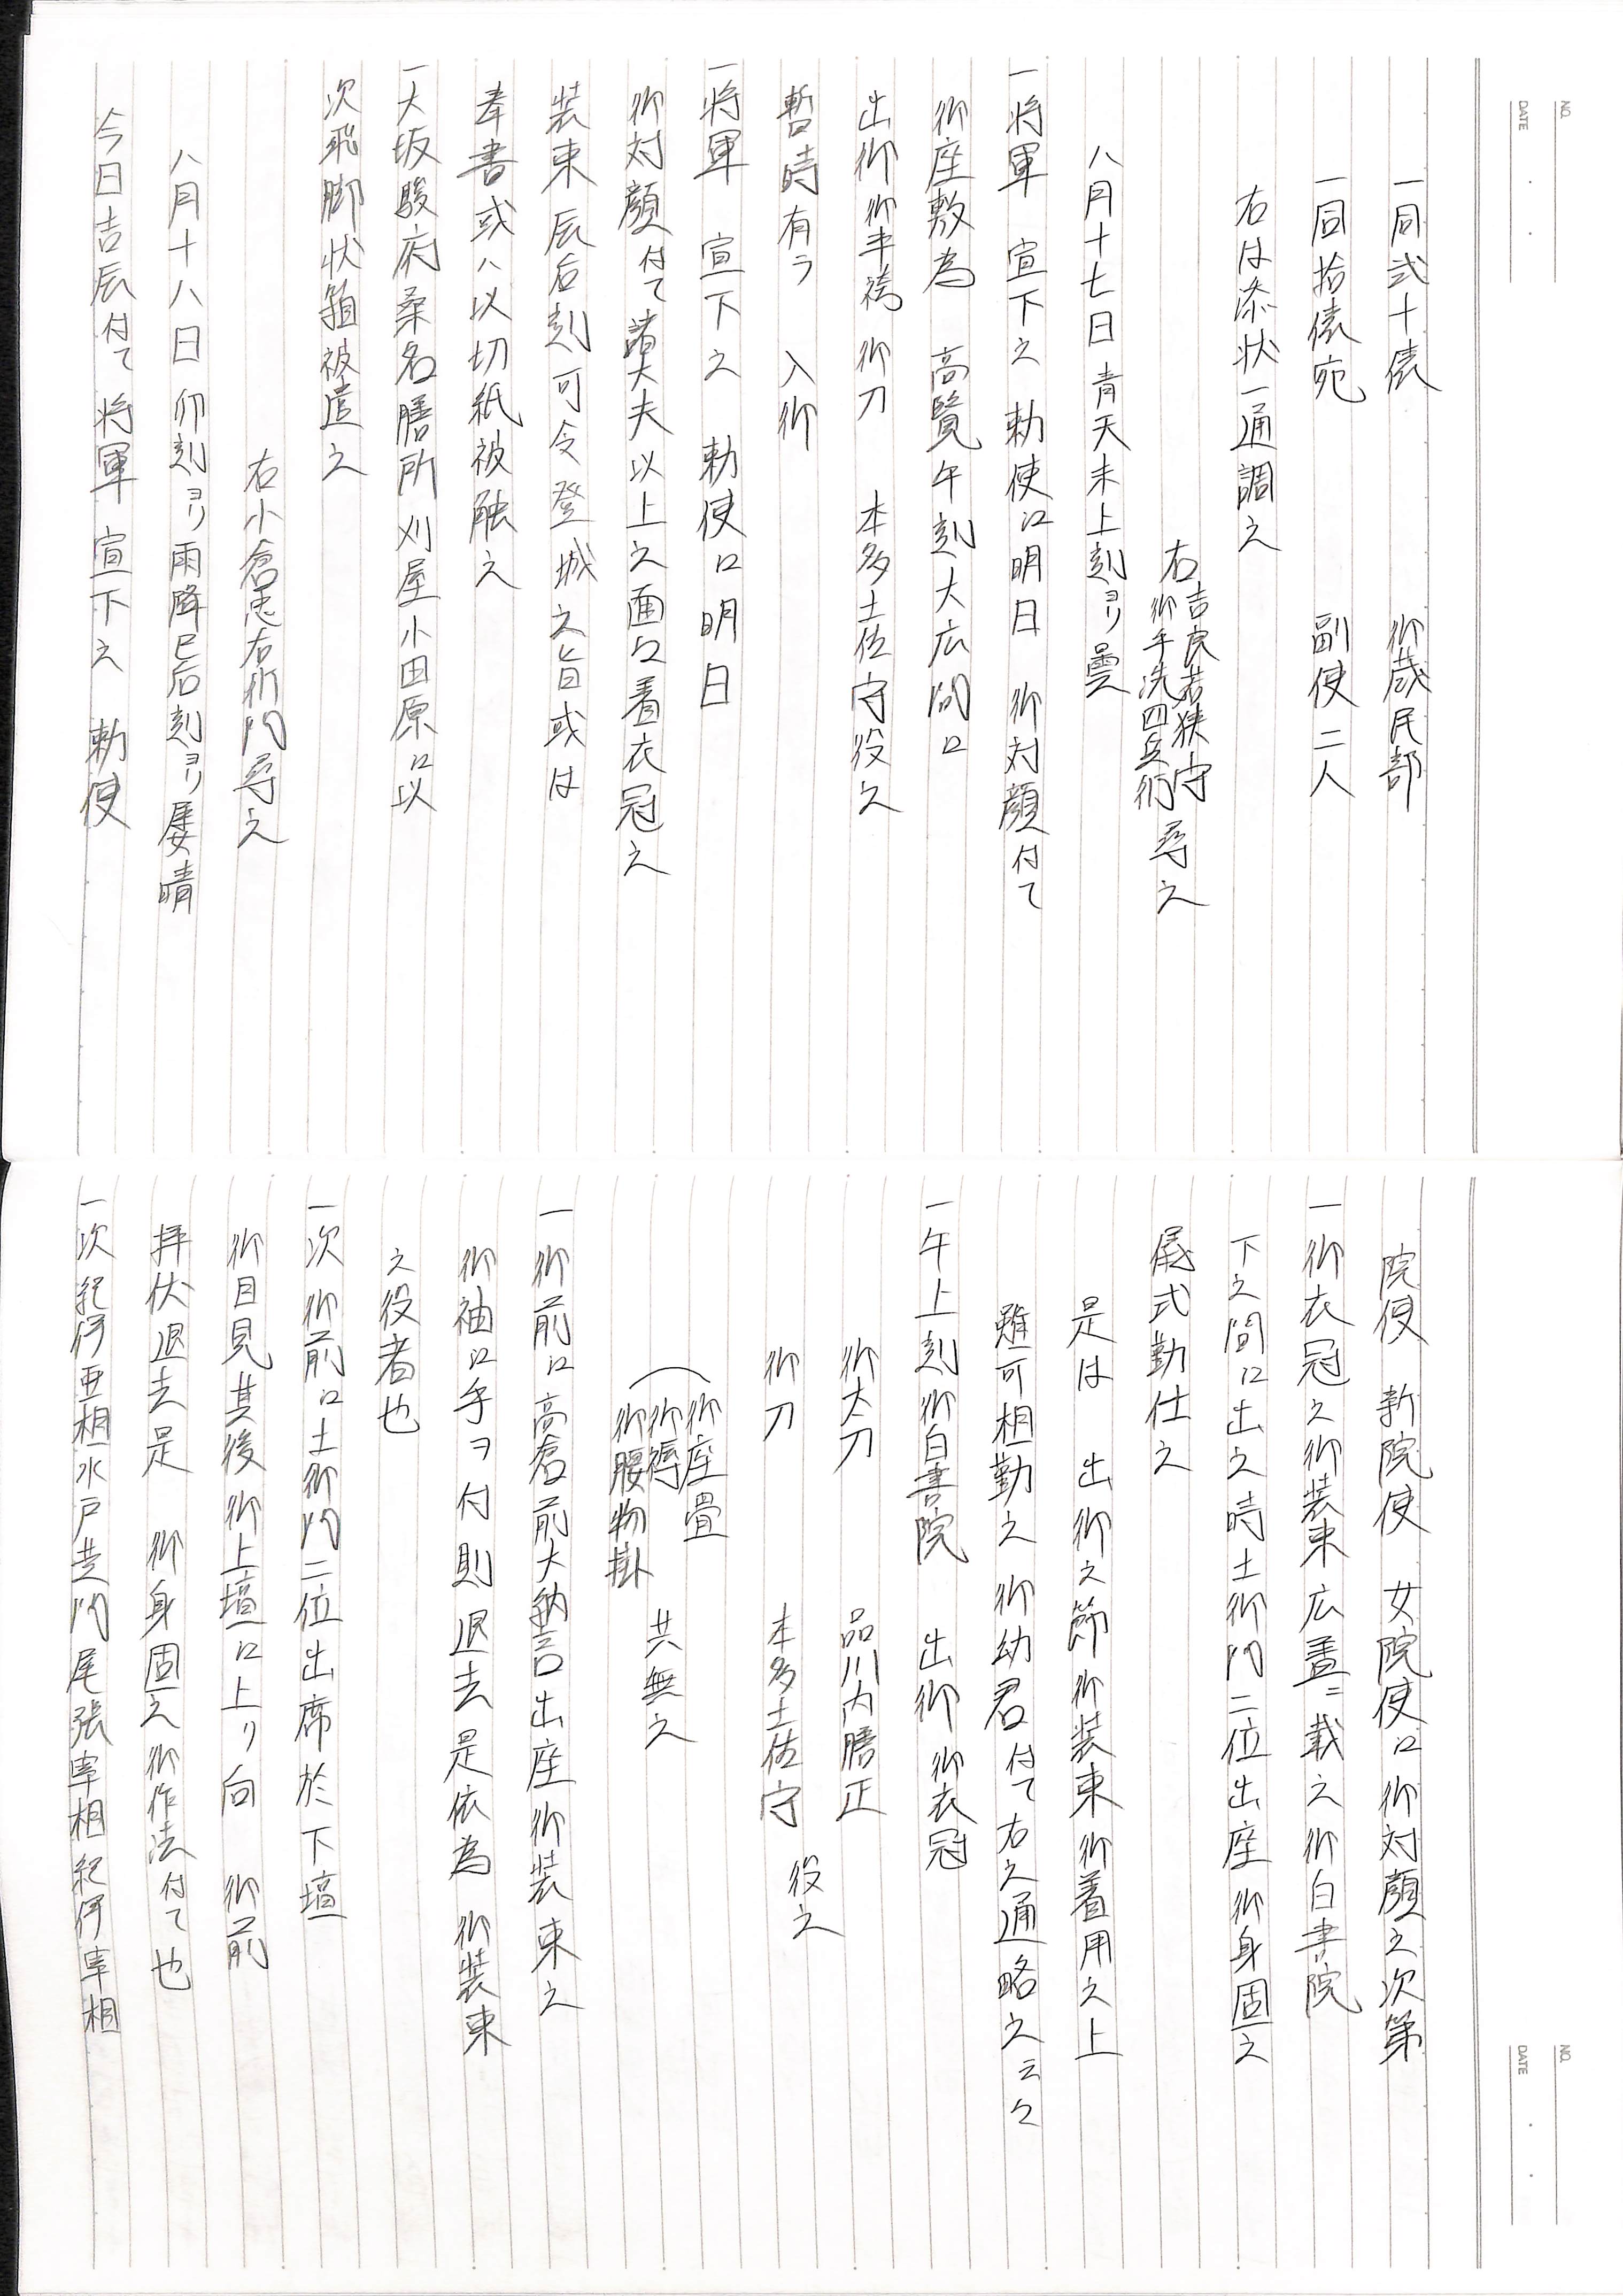 NO.
DATE
一同弐十俵　御蔵民部
一同拾俵宛　副使二人
右は添状一通調之
右吉良若狭守
御手洗四兵衛　尋之
八月十七日青天未上刻ヨリ曇
一将軍　宣下之　勅使江明日　御対顔付て
御座敷為　高覧午刻大広間江
出御　御半袴　御刀　本多土佐守役之
暫時有ッ　入御
一将軍　宣下之　勅使江明日
御対顔付て諸大夫以上之面々着衣冠之
装束辰后刻可令登城之旨或は
奉書或ハ以切紙被触之
一大坂駿府桑名膳所刈屋小田原江以
次飛脚状箱被遣之
右小倉忠右衛門尋之
八月十八日　卯刻ヨリ雨降巳后刻ヨリ屡晴
今日吉辰付て　将軍　宣下之　勅使
NO.
DATE
院使　新院使　女院使江御対顔之次第
一御衣冠之御装束広蓋ニ載之御白書院
下之間江出之時土御門二位出座　御身固之
儀式勤仕之
是は　出御之節御装束御着用之上
雖可相勤之　御幼君付て右之通略之云々
一午上刻御白書院　出御　御衣冠
御太刀　品川内膳正
御刀　本多土佐守　役之
御座畳
御褥
御腰物掛　共無之
一御前江高倉前大納言出座御装束之
御袖江手ヲ付則退去是依為　御装束
之役者也
一次　御前江土御門二位出席於下壇
御目見其後御上壇江上リ向　御前
拝伏退去是　御身固之御作法付て也
一次紀伊亜相水戸黄門尾張宰相紀伊宰相